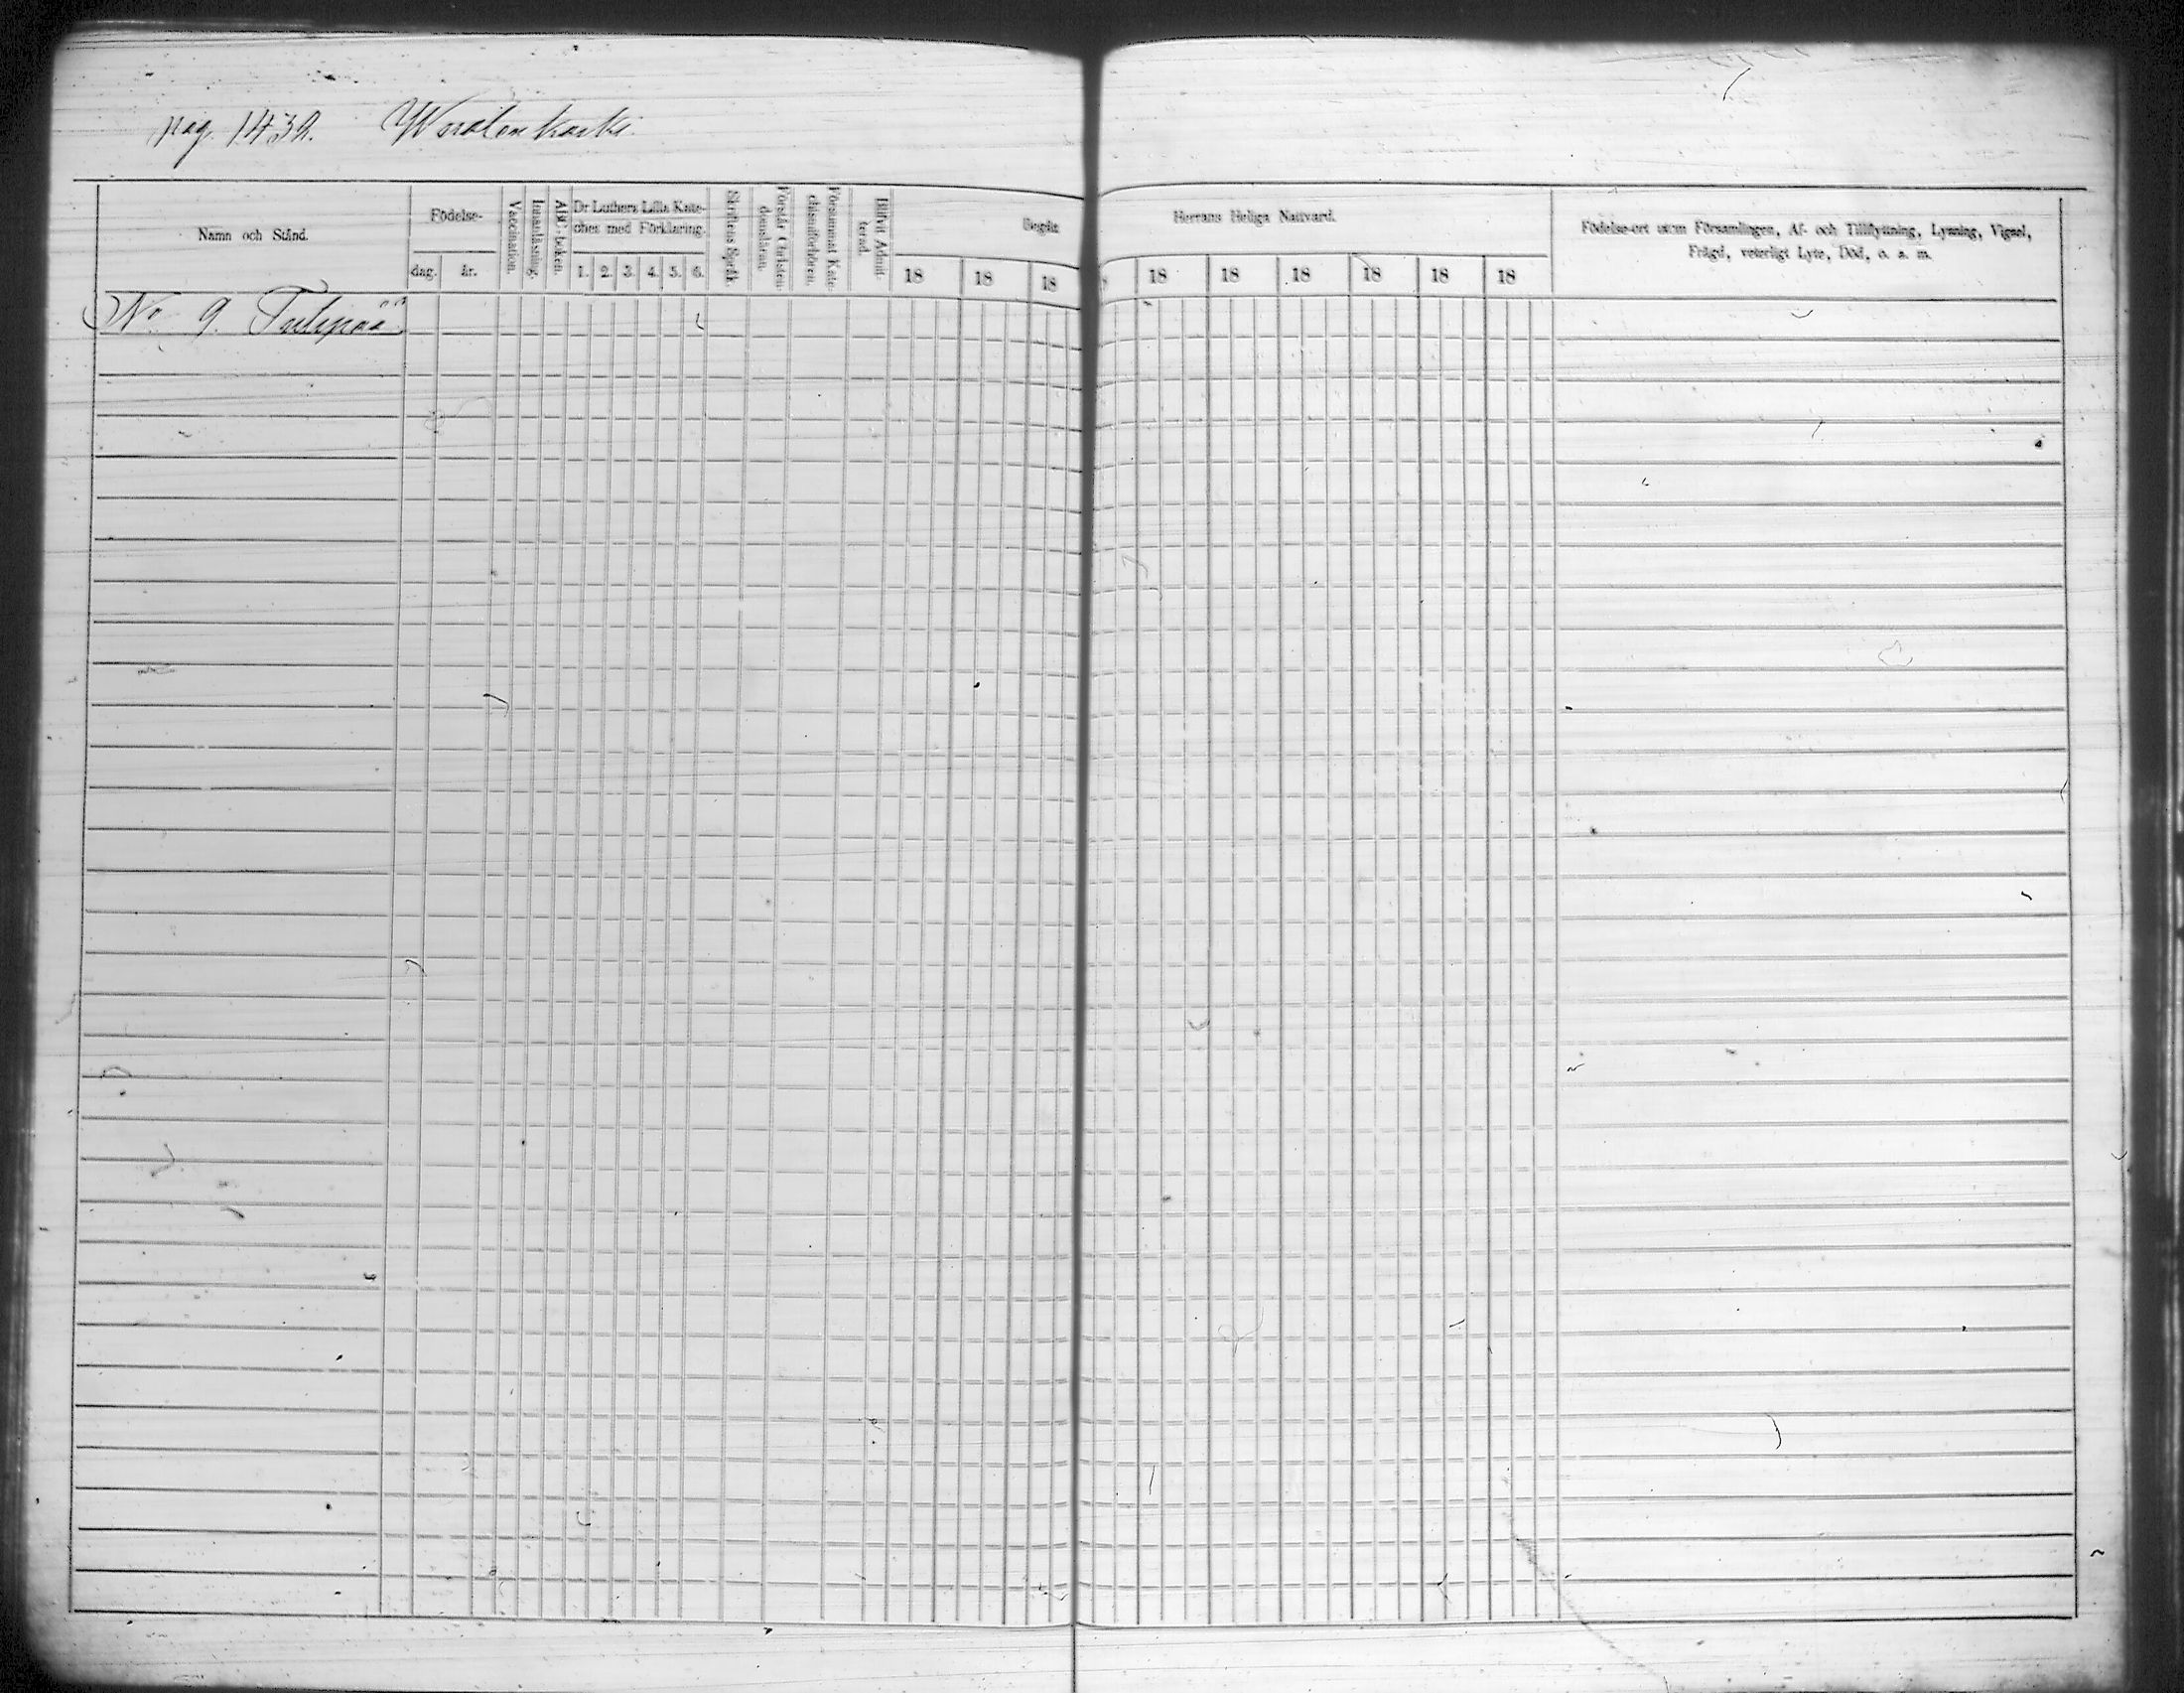 pag. 1432. Wuotenkoski.
Namn och Stånd.
Födelse-
dag. år.
Vaccination.
Innanläsning.
ABC-boken.
Dr Luthers Lilla Kate-
ches med Förklaring.
1. 2. 3. 4. 5. 6.
Skriftens Språk.
Förstår Christen-
domsläran.
Försummat Kate-
chismiförhören.
Blifvit Admit-
terad.
Begått Herrans Heliga Nattvard.
18 18 18 18 18 18 18 18 18
Födelse-ort utom Församlingen, Af- och Tillflyttning, Lysning, Vigsel,
Frägd, veterligt Lyte, Död, o. s. m.
No 9. Tulipää